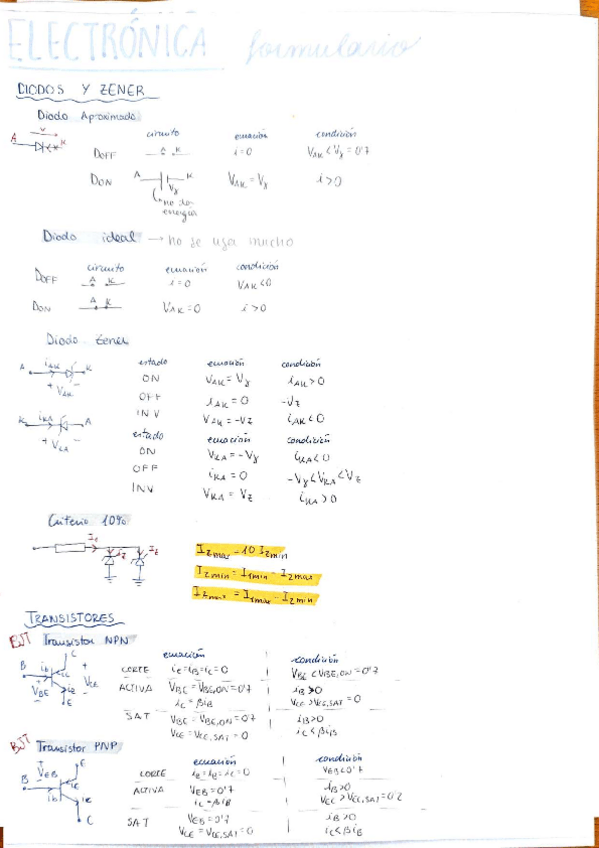 ELECTRÓNICA formulario
DIODOS Y ZENER
Diodo Aproximado
circuito ecuación condición
A K
DOFF A K i=0 VAK < Vγ = 0'7
DON A K VAK = Vγ i>0
Vγ
no da energía
Diodo ideal → no se usa mucho
circuito ecuación condición
DOFF A K i=0 VAK<0
DON A K VAK=0 i>0
Diodo Zener
estado ecuación condición
A iAK K ON VAK = Vγ iAK>0
+ VAK - OFF iAK = 0 -Vz
INV VAK = -Vz iAK<0
K iKA A estado ecuación condición
+ VKA - ON VKA = -Vγ iKA<0
OFF iKA = 0 -Vγ<VKA<Vz
INV VKA = Vz iKA>0
Criterio 10%
Iz Iz
Izmax = 10 Izmin
Izmin = I1min - Izmax
Izmax = I1max - Izmin
TRANSISTORES
BJT Transistor NPN
ecuación condición
B ib C + VCE - ie E VBE
CORTE iE=iB=iC=0 VBE<VBE,ON=0'7
ACTIVA VBE=VBE,ON=0'7 iB>0
iC=βiB VCE>VCE,SAT=0
SAT VBE=VBE,ON=0'7 iB>0
VCE=VCE,SAT=0 iC<βiB
BJT Transistor PNP
ecuación condición
VEB E B ib ie C
CORTE iE=iB=iC=0 VEB<0'7
ACTIVA VEB=0'7 iB>0
iC=βiB VEC>VEC,SAT=0'2
SAT VEB=0'7 iB>0
VCE=VCE,SAT=0 iC<βiB